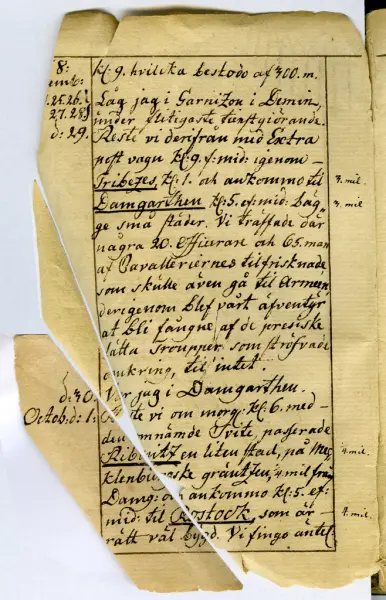 8: kl: 9. hvilcka bestodo af 300. m.
Låg jag i Garnizon i Demin,
25. 26. under flitigaste tienstgiörande.
27. 28.
d: 29. Reste vi derifrån med Extra
post vagn kl: 9. f: mid: igenom
Tribezes, kl: 1. och ankommo til 3. mil.
Damgarthen kl: 5. ef: mid: bäg- 3. mil.
ge små städer. Vi träffade där
några 20. officerare och 65. man
af Cavalleriernes tilfrisknade
som skulle även gå til Armeen
derigenom blef vårt äfventyr
at bli fångne af de preusiske
lätta Troupper som ströfvade
omkring, til intet.
d: 30. Var jag i Damgarthen.
Octob: d: 1: Reste vi om morg: kl: 6. med
den omnämde Svite, passerade
Ribnitz en liten stad, på Mec 4. mil.
klenburgske gräntzen, 1/4 mil från
Damg: och ankommo kl: 5. ef:
mid: til Rostock, som är 4. mil.
rätt väl bygd. Vi fingo